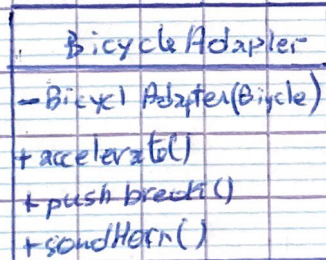 BicycleAdapter
- Bicycl Adapter(Bicycle)
+ accelerate()
+ push break()
+ soundHorn()